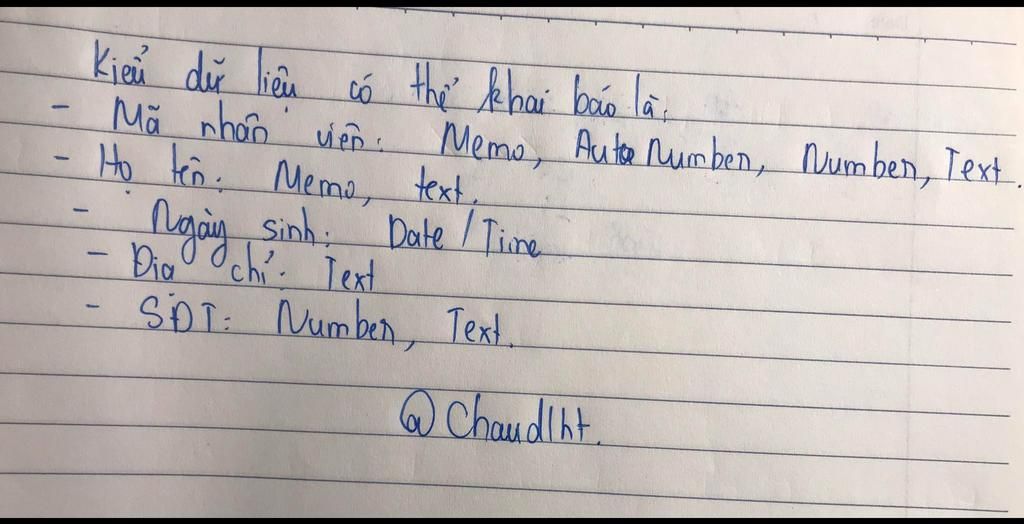 Kiểu dữ liệu có thể khai báo là:
- Mã nhân viên: Memo, Auto Number, Number, Text.
- Họ tên: Memo, text.
- Ngày sinh: Date / Time
- Địa chỉ: Text
- SĐT: Number, Text.
@Chaudlht.